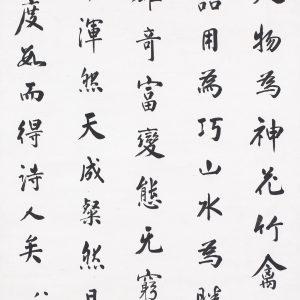 物為神花竹禽
用為巧山水為勝
雄奇富變態无窮
渾然天成粲然日
度數而得詩人矣